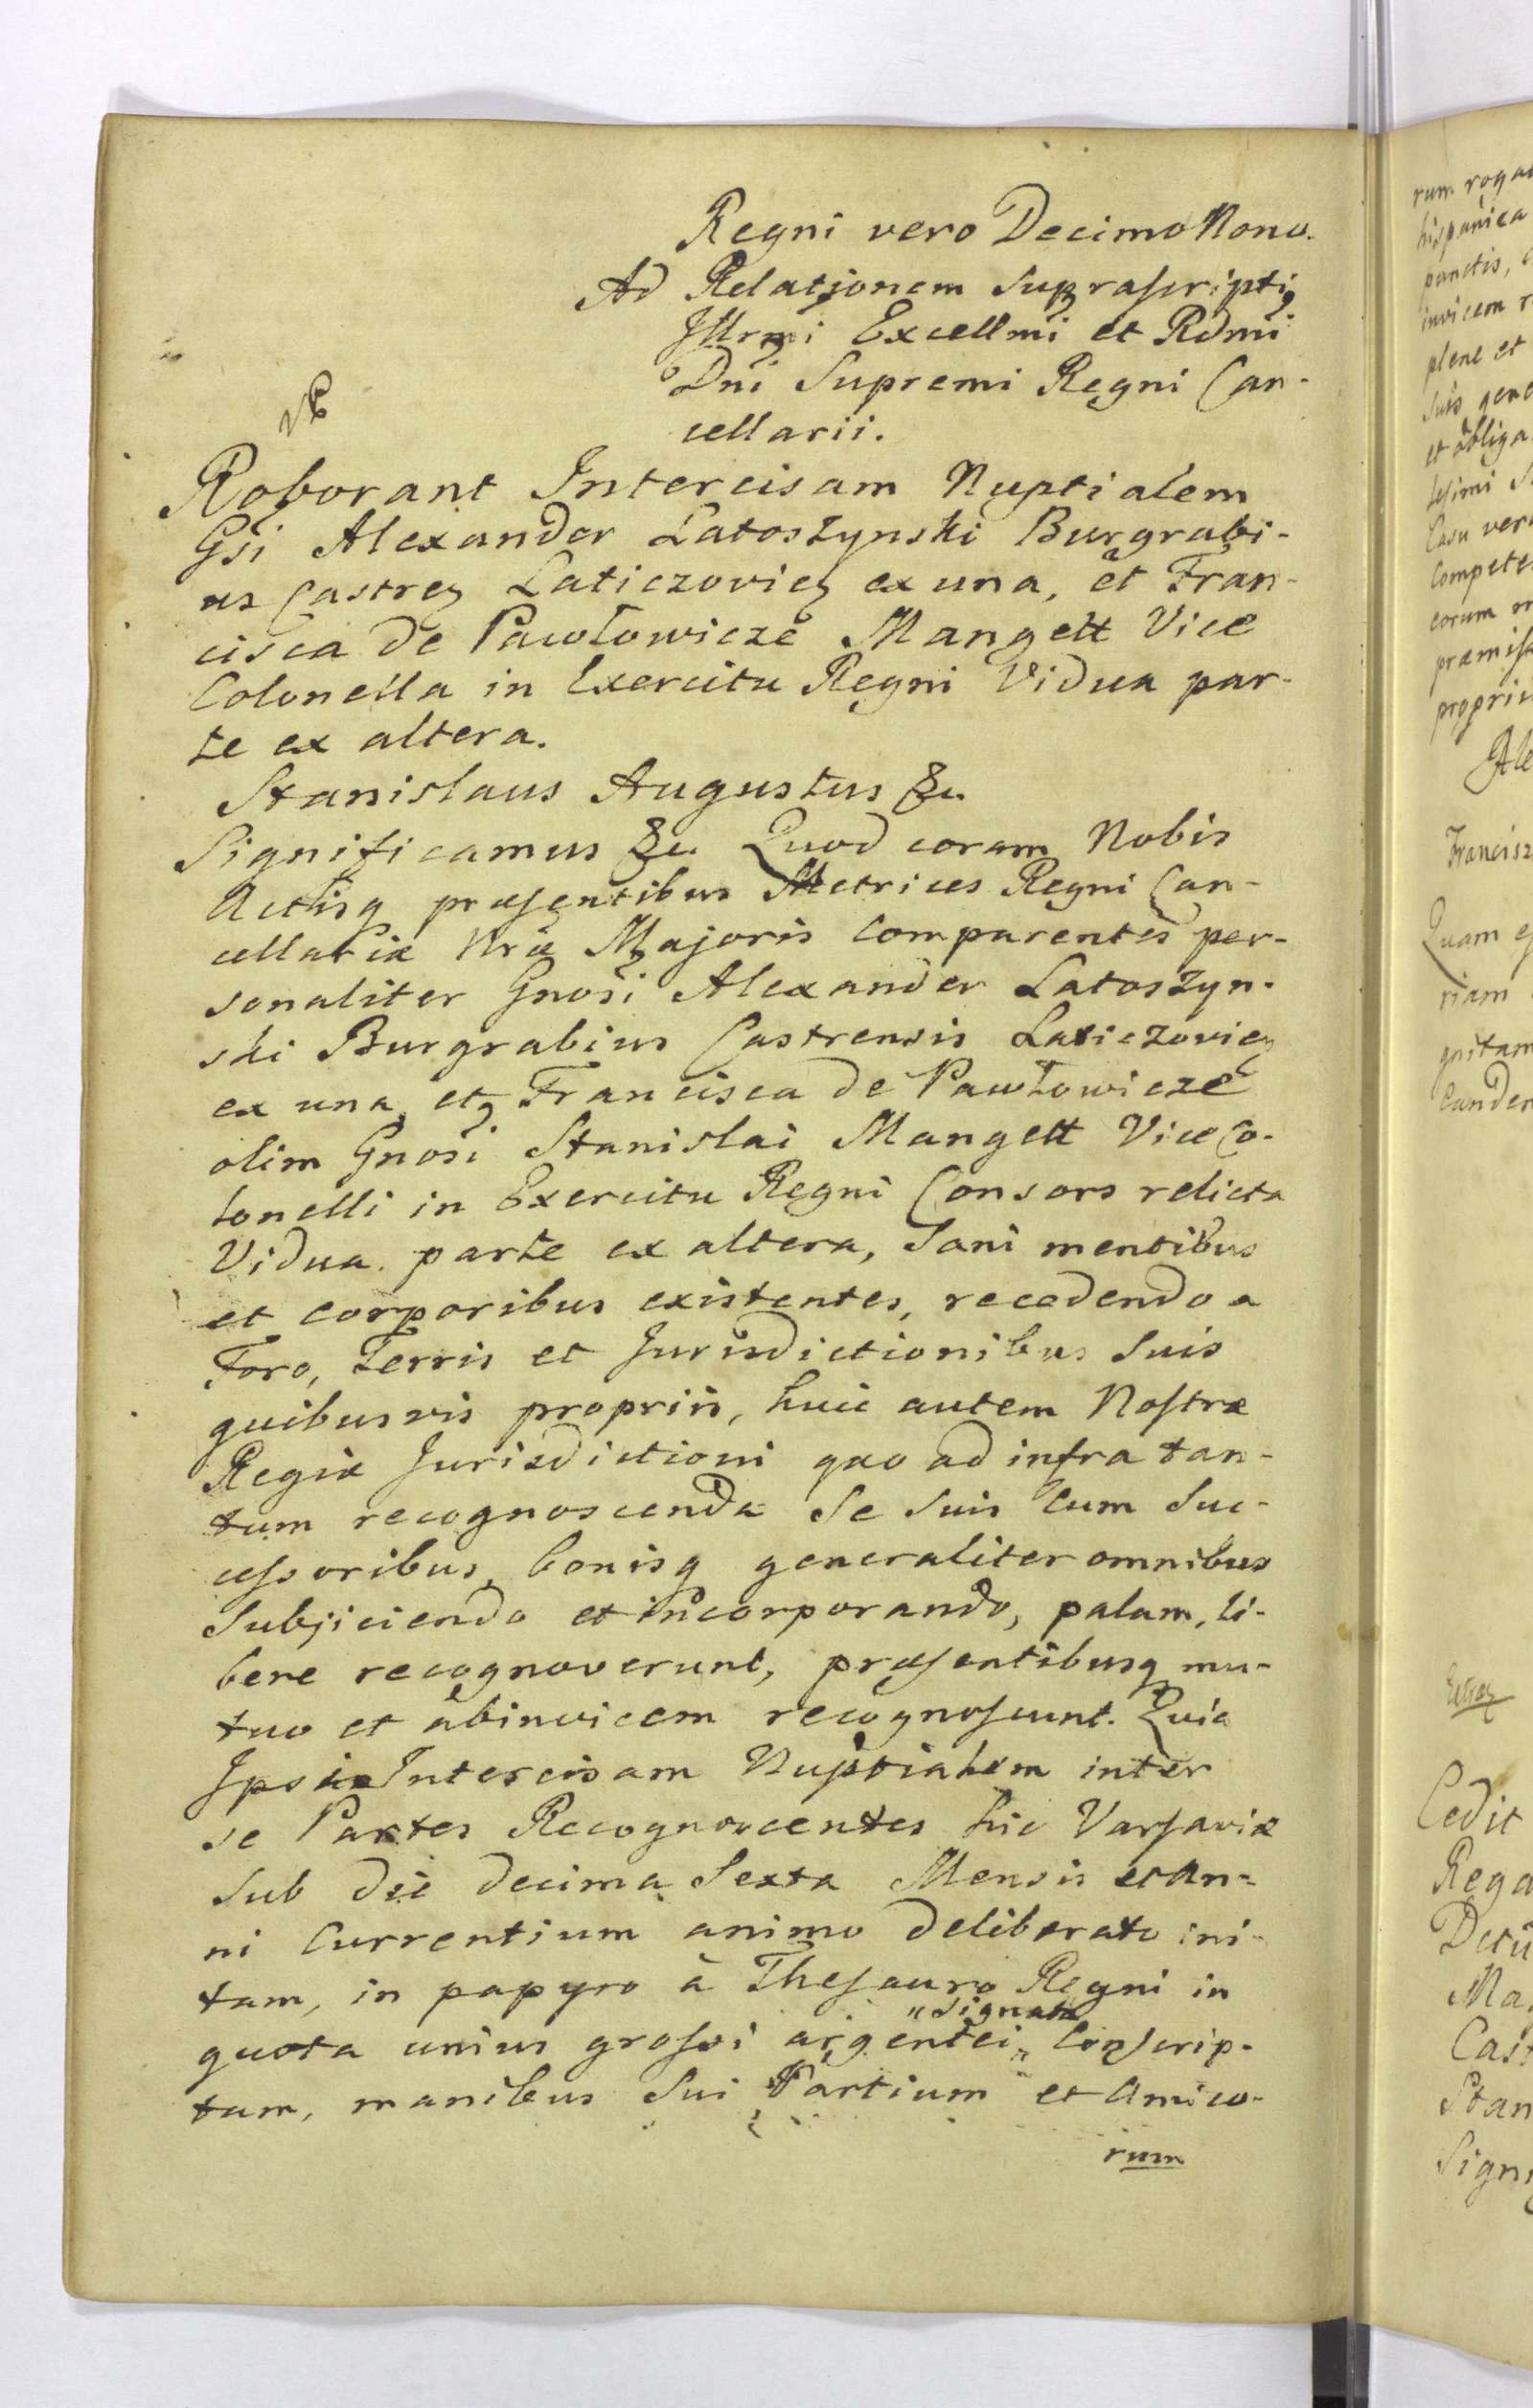 Regni vero Decimo Nono.
Ad Relationem Suprascripti
Jllrmi Excellmi et Rdmi
Dni Supremi Regni Can-
cellarii.
Roborant Intercisam Nuptialem
Gsi Alexander Latoszynski Burgrabi-
us Castren Laticzovien ex una, et Fran-
cisca de Pawłowicze Mangett Vice
Colonella in Exercitu Regni Vidua par-
te ex altera.
Stanislaus Augustus &c.
Significamus &c. Quod coram Nobis
Actisq præsentibus Metrices Regni Can-
cellariæ Nræ Majoris Comparentes per-
sonaliter Gnosi Alexander Latoszyn-
ski Burgrabius Castrensis Laticzovien
ex una, et Francisca de Pawłowicze
olim Gnosi Stanislai Mangett Vice Co-
lonelli in Exercitu Regni Consors relicta
Vidua parte ex altera, Sani mentibus
et corporibus existentes, recedendo a
Foro, Terris et Jurisdictionibus Suis
quibusvis propriis, huic autem Nostræ
Regiæ Jurisdictioni quo ad infra tan-
tum recognoscenda Se Suis cum Suc-
cessoribus, bonisq generaliter omnibus
Subjiciendo et incorporando, palam, li-
bere recognoverunt, præsentibusq mu-
tuo et abinvicem recognoscunt. Quia
Intercisam Nuptialem inter
se Partes Recognoscentes hic Varsaviæ
Sub die decima Sexta Mensis et An-
ni Currentium animo deliberato ini-
tam, in papyro à Thesauro Regni in
"Signata
quota unius grossi argentei " Conscrip-
tam, manibus Sui Partium et Amico-
rum
rum
hispanica
punctis,
plene et
Suis
Casu
corum
Quam
riam
Cedit